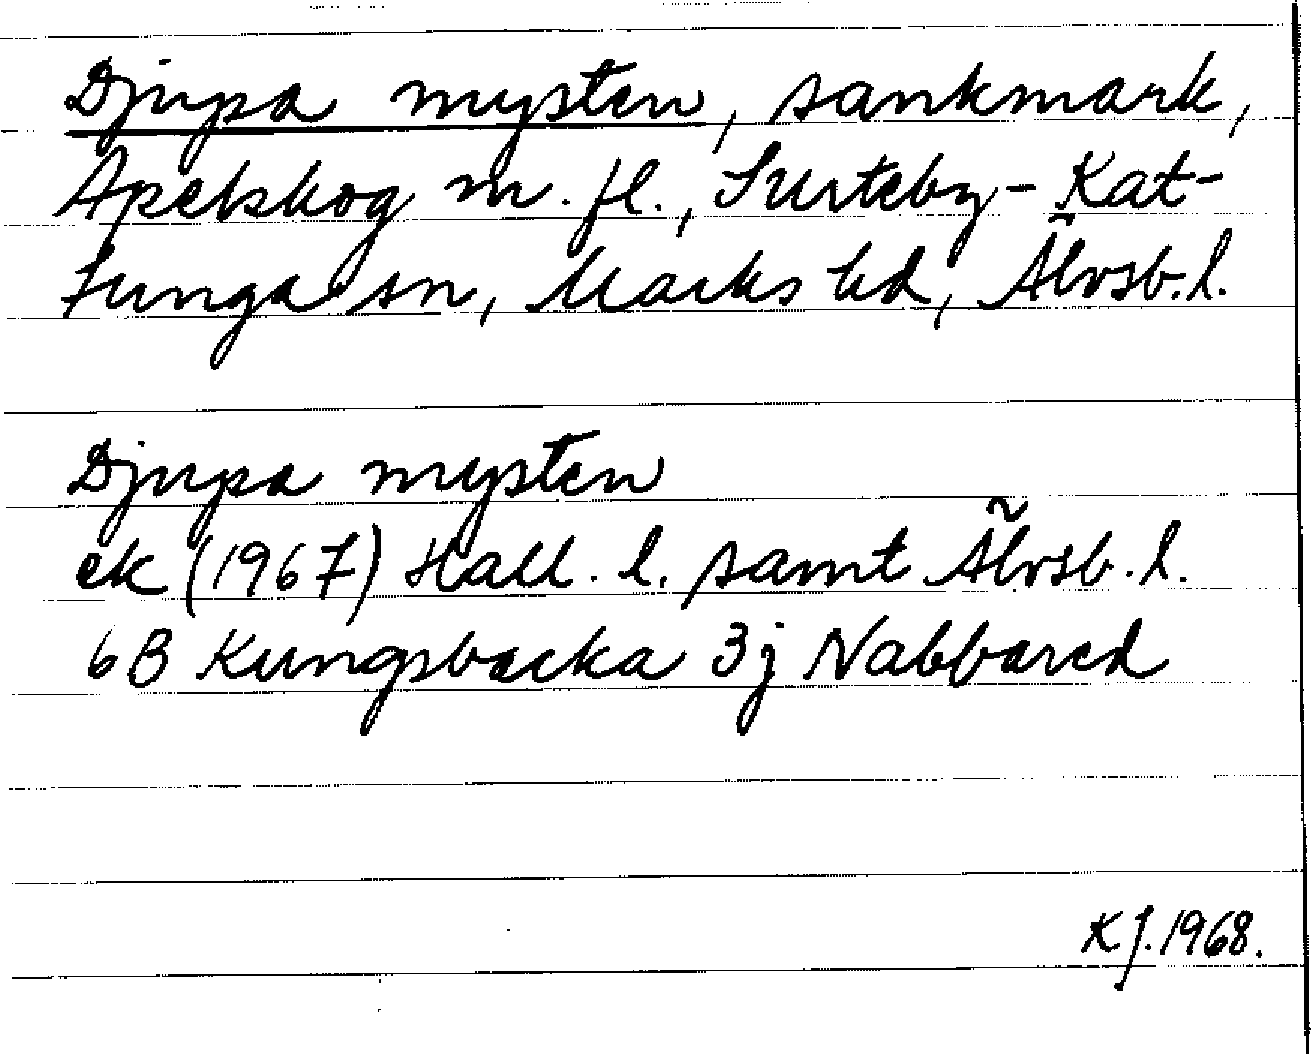 Djupa mysten, sankmark,
Apelskog m. fl., Surteby-Kat-
tunga sn, Marks hd, Älvsb. l.
Djupa mysten
ek (1967) Hall. l. samt Älvsb. l.
6B Kungsbacka 3j Nabbared
KJ. 1968.